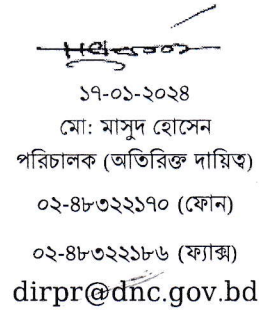 ১৭-০১-২০২৪
মো: মাসুদ হোসেন
পরিচালক (অতিরিক্ত দায়িত্ব)
০২-৪৮৩২২১৭০ (ফোন)
০২-৪৮৩২২১৮৬ (ফ্যাক্স)
dirpr@dnc.gov.bd